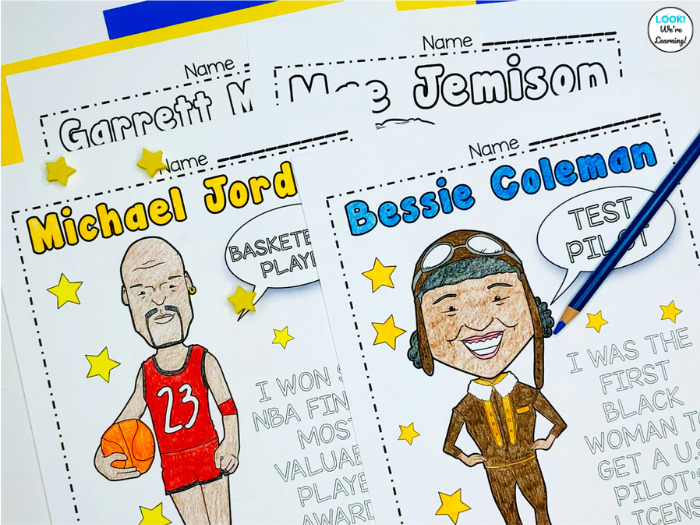 LOOK!
We're
Learning!
Name
Garrett M
Name
Mae Jemison
Name
Michael Jord
BASKETB
PLAYE
23
I WON S
NBA FIN
MOST
VALUAB
PLAYE
AWARD
Name
Bessie Coleman
TEST
PILOT
I WAS THE
FIRST
BLACK
WOMAN TO
GET A U.S
PILOT'S
LICENS